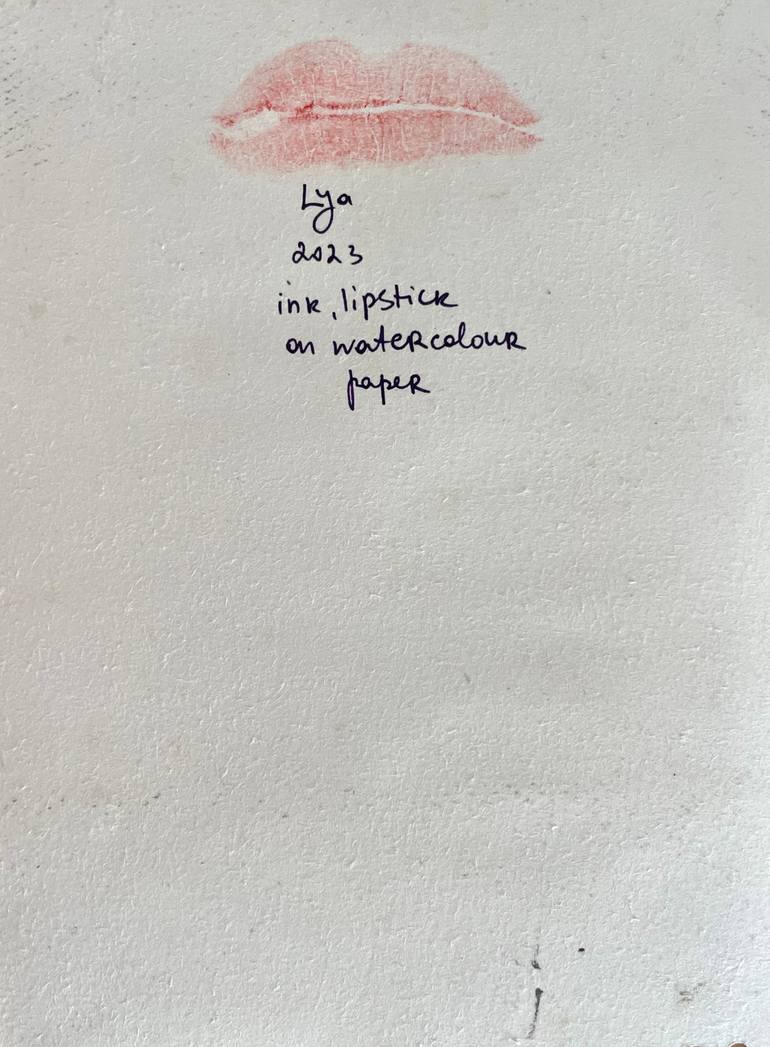 Lya
2023
ink, lipstick
on watercolour
paper